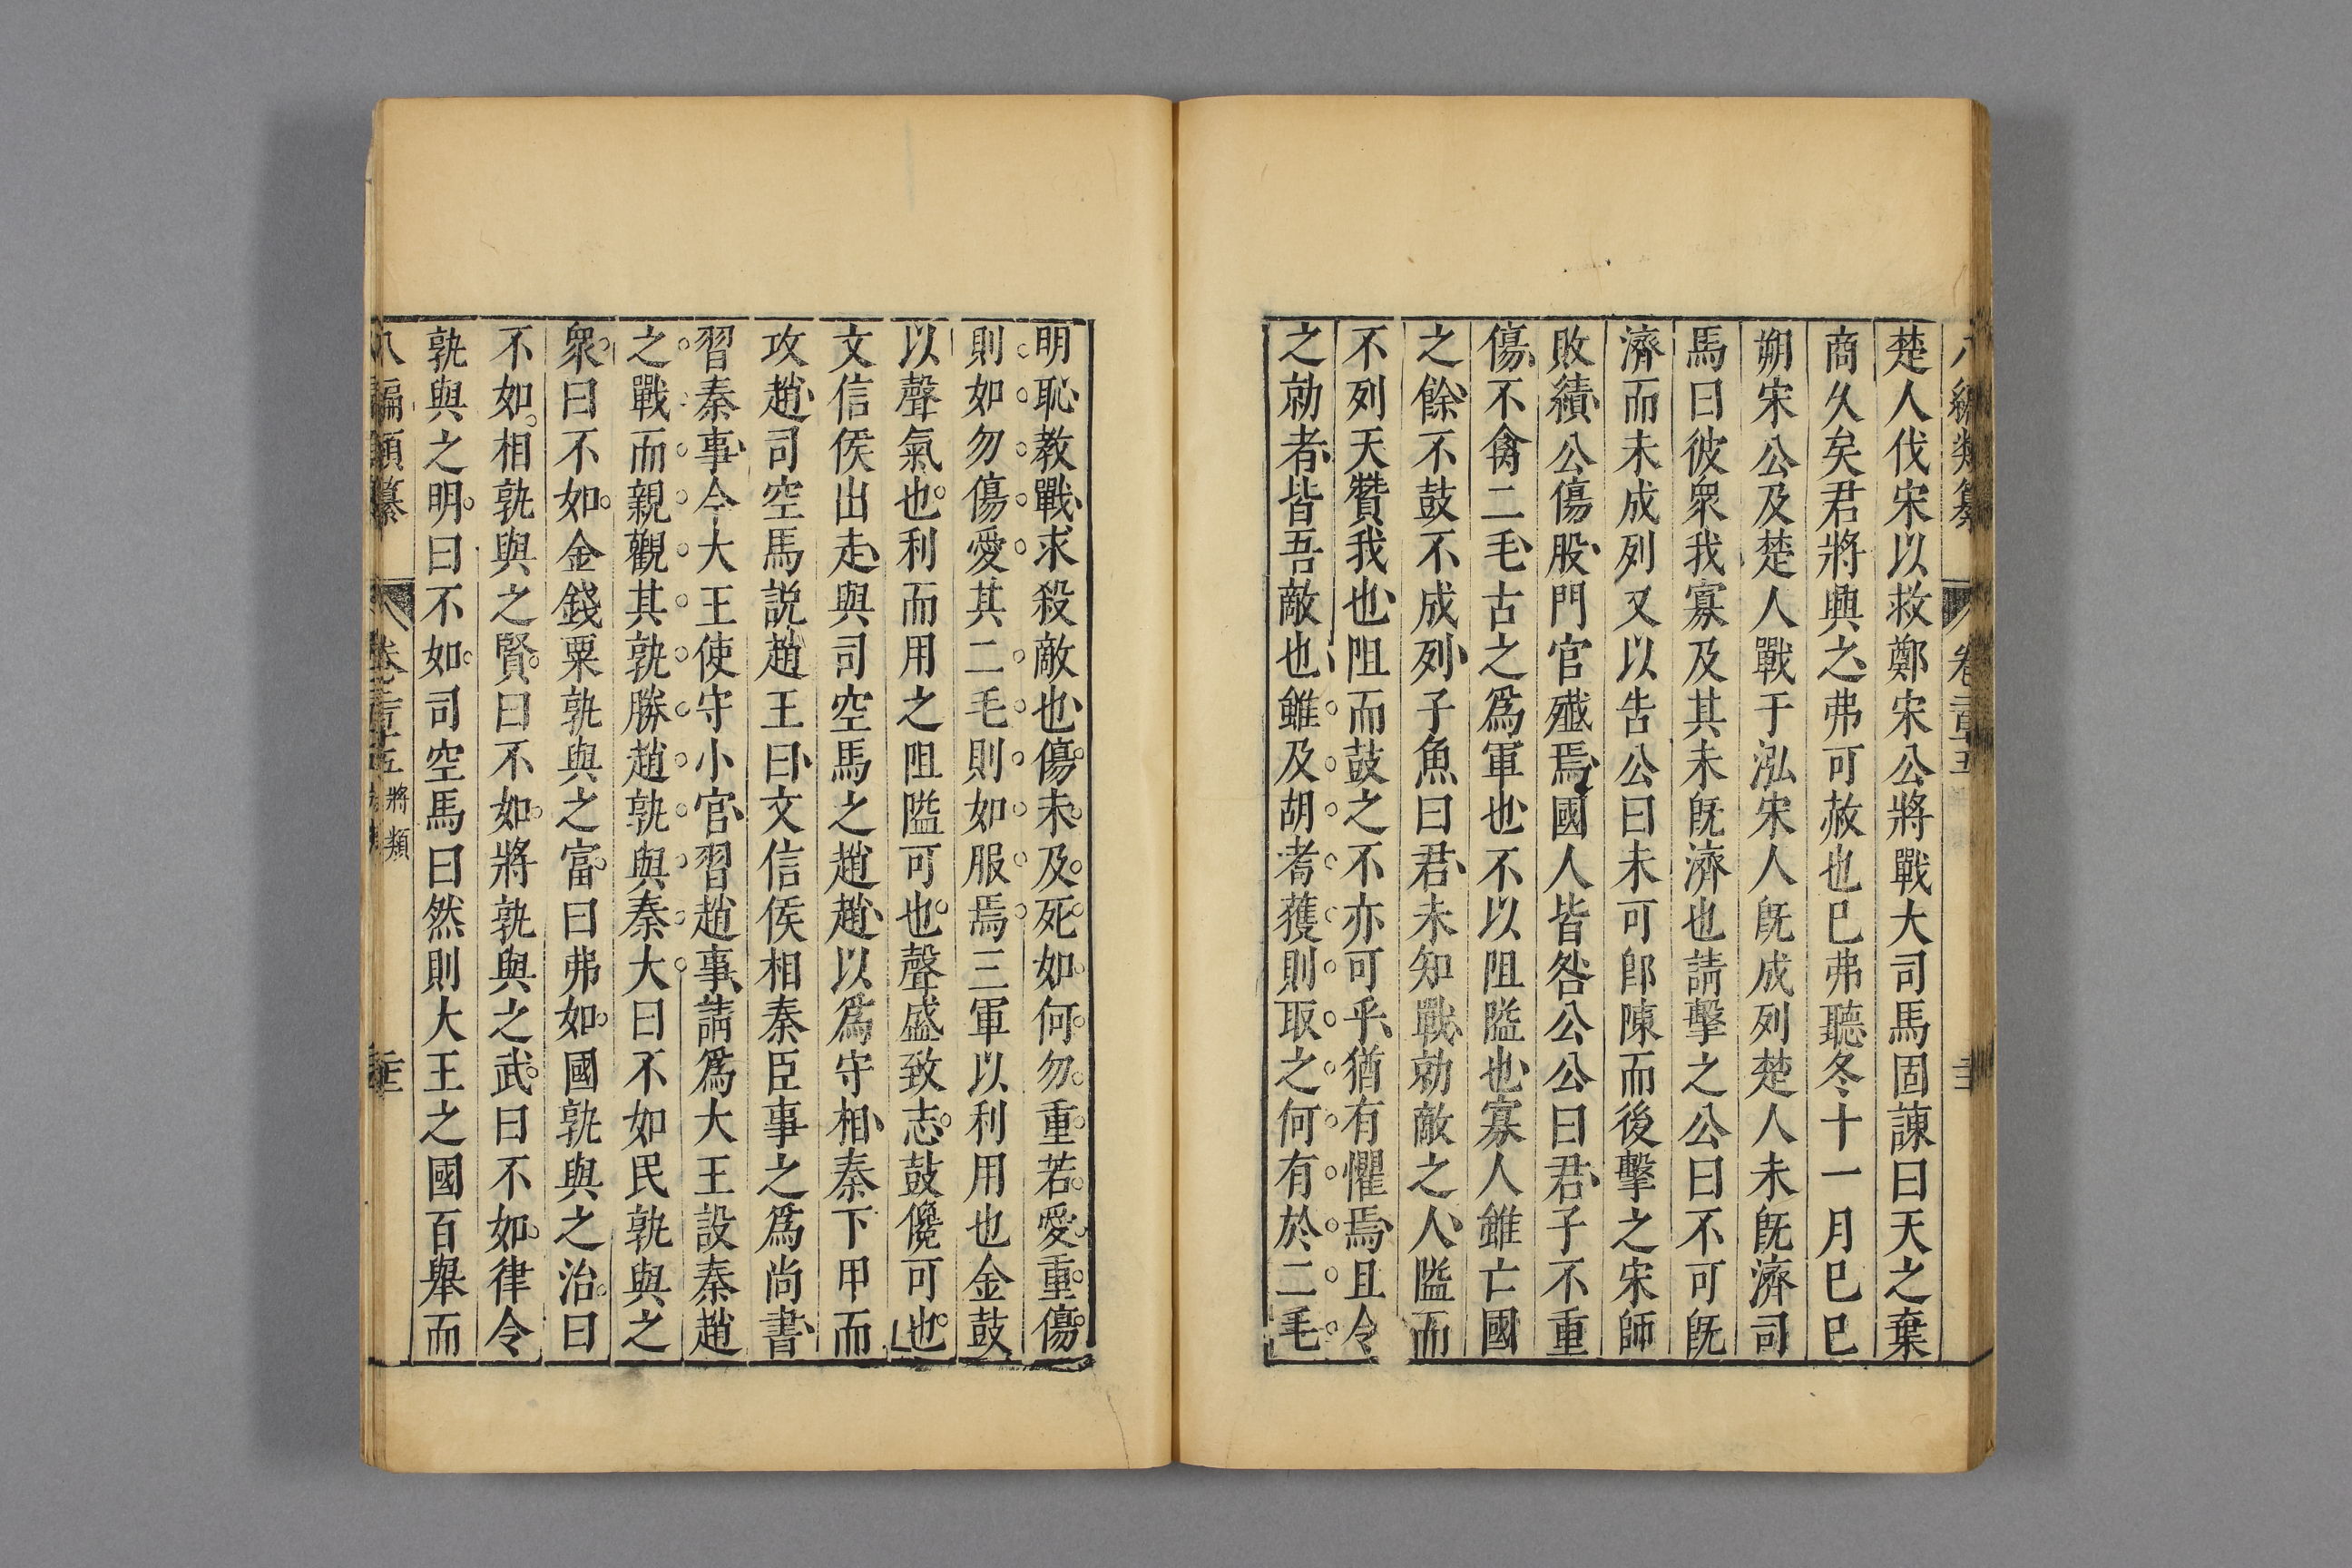 八編類纂 卷二百十五
楚人伐宋以救鄭宋公將戰大司馬固諫曰天之棄
商久矣君將興之弗可赦也已弗聽冬十一月己巳
朔宋公及楚人戰于泓宋人旣成列楚人未旣濟司
馬曰彼衆我寡及其未旣濟也請擊之公曰不可旣
濟而未成列又以告公曰未可卽陳而後擊之宋師
敗績公傷股門官殲焉國人皆咎公公曰君子不重
傷不禽二毛古之爲軍也不以阻隘也寡人雖亡國
之餘不鼓不成列子魚曰君未知戰勍敵之人隘而
不列天贊我也阻而鼓之不亦可乎猶有懼焉且今
之勍者皆吾敵也雖及胡耇獲則取之何有於二毛
明恥教戰求殺敵也傷未及死如何勿重若愛重傷
則如勿傷愛其二毛則如服焉三軍以利用也金鼓
以聲氣也利而用之阻隘可也聲盛致志鼓儳可也
文信侯出走與司空馬之趙趙以爲守相秦下甲而
攻趙司空馬説趙王曰文信侯相秦臣事之爲尚書
習秦事今大王使守小官習趙事請爲大王設秦趙
之戰而親觀其孰勝趙孰與秦大曰不如民孰與之
衆曰不如金錢粟孰與之富曰弗如國孰與之治曰
不如相孰與之賢曰不如將孰與之武曰不如律令
孰與之明曰不如司空馬曰然則大王之國百舉而
八編類纂 卷二百十五 將類